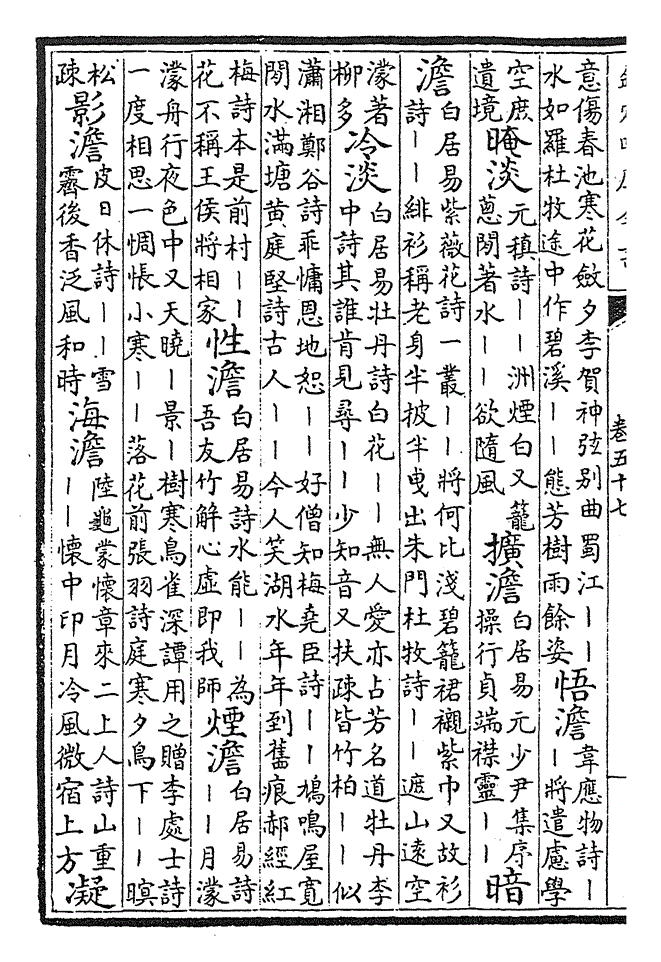 卷五十七
意傷春池寒花斂夕李賀神弦别曲蜀江——
水如羅杜牧途中作碧溪——態芳樹雨餘姿
悟澹
韋應物詩—
—將遣慮學
空庶
遺境
晻淡
元稹詩——洲煙白又籠
蔥閴著水——欲隨風
擴澹
白居易元少尹集序
操行貞端襟靈——
暗
澹
白居易紫薇花詩一叢——將何比淺碧籠裙襯紫巾又故衫
詩——緋衫稱老身半披半曳出朱門杜牧詩——遮山遠空
濛著
柳多
冷淡
白居易牡丹詩白花——無人愛亦占芳名道牡丹李
中詩其誰肯見尋——少知音又扶疎皆竹柏——似
瀟湘鄭谷詩乖慵恩地恕——好僧知梅堯臣詩——鳩鳴屋寬
閒水滿塘黄庭堅詩古人——今人笑湖水年年到舊痕郝經紅
梅詩本是前村——
花不稱王侯將相家
性澹
白居易詩水能——為
吾友竹解心虛即我師
煙澹
白居易詩
——月濛
濛舟行夜色中又天曉—景—樹寒鳥雀深譚用之贈李處士詩
一度相思一惆悵小寒——落花前張羽詩庭寒夕鳥下——暝
松
疎
影澹
皮日休詩——雪
霽後香泛風和時
海澹
陸龜蒙懷章來二上人詩山重
——懷中印月冷風微宿上方
凝